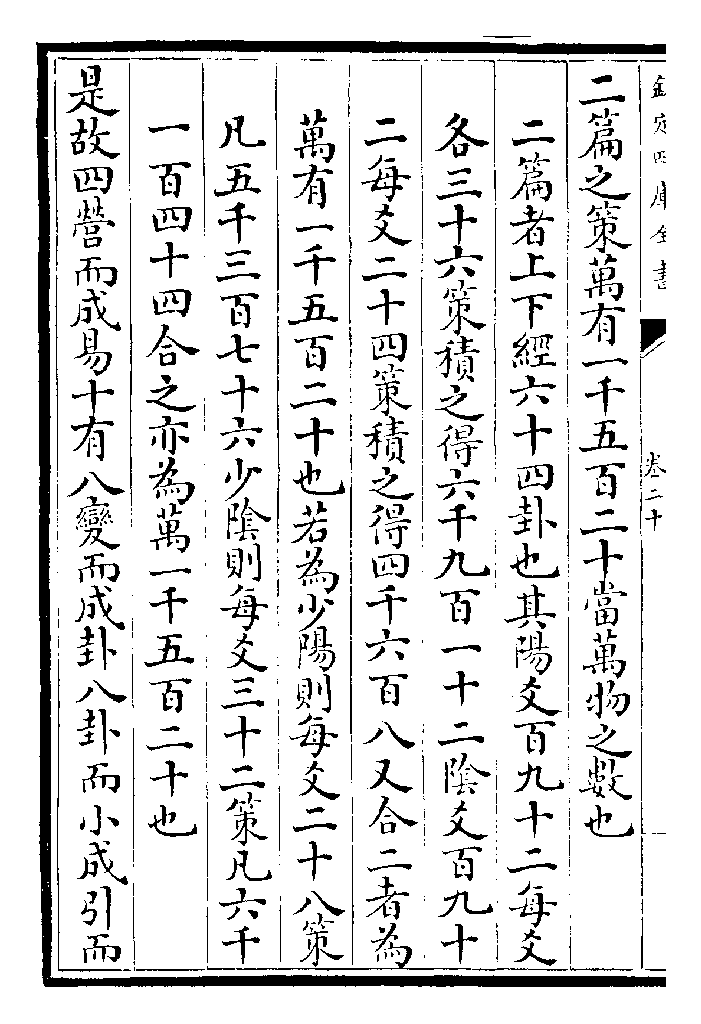 欽定四庫全書
卷二十
二篇之策萬有一千五百二十當萬物之數也
二篇者上下經六十四卦也其陽爻百九十二每爻
各三十六策積之得六千九百一十二陰爻百九十
二每爻二十四策積之得四千六百八又合二者為
萬有一千五百二十也若為少陽則每爻二十八策
凡五千三百七十六少陰則每爻三十二策凡六千
一百四十四合之亦為萬一千五百二十也
是故四營而成易十有八變而成卦八卦而小成引而